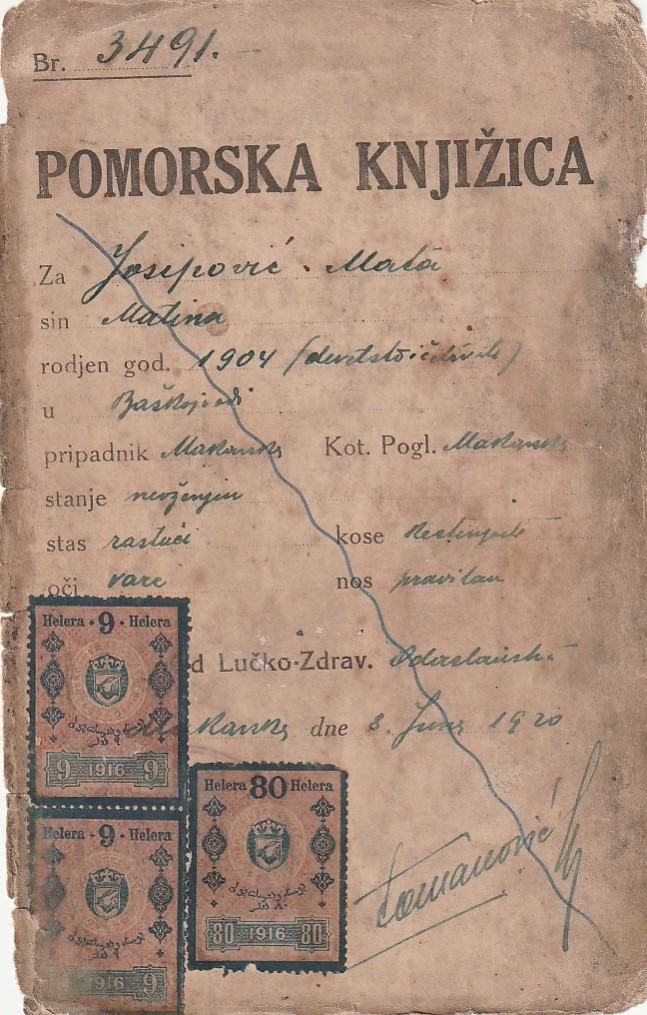 Br. 3491.
POMORSKA KNJIŽICA
Za Josipović Mata
sin Matina
rodjen god. 1904
u
pripadnik Makarska Kot. Pogl. Makarska
stanje neoženjen
stas rastući kose
oči nos pravilan
d Lučko-Zdrav.
Makarska dne 8. Juna 1920
Tomanović
Helera 9 Helera
9 1916 9
Helera 80 Helera
80 1916 80
Helera 9 Helera
1916 9